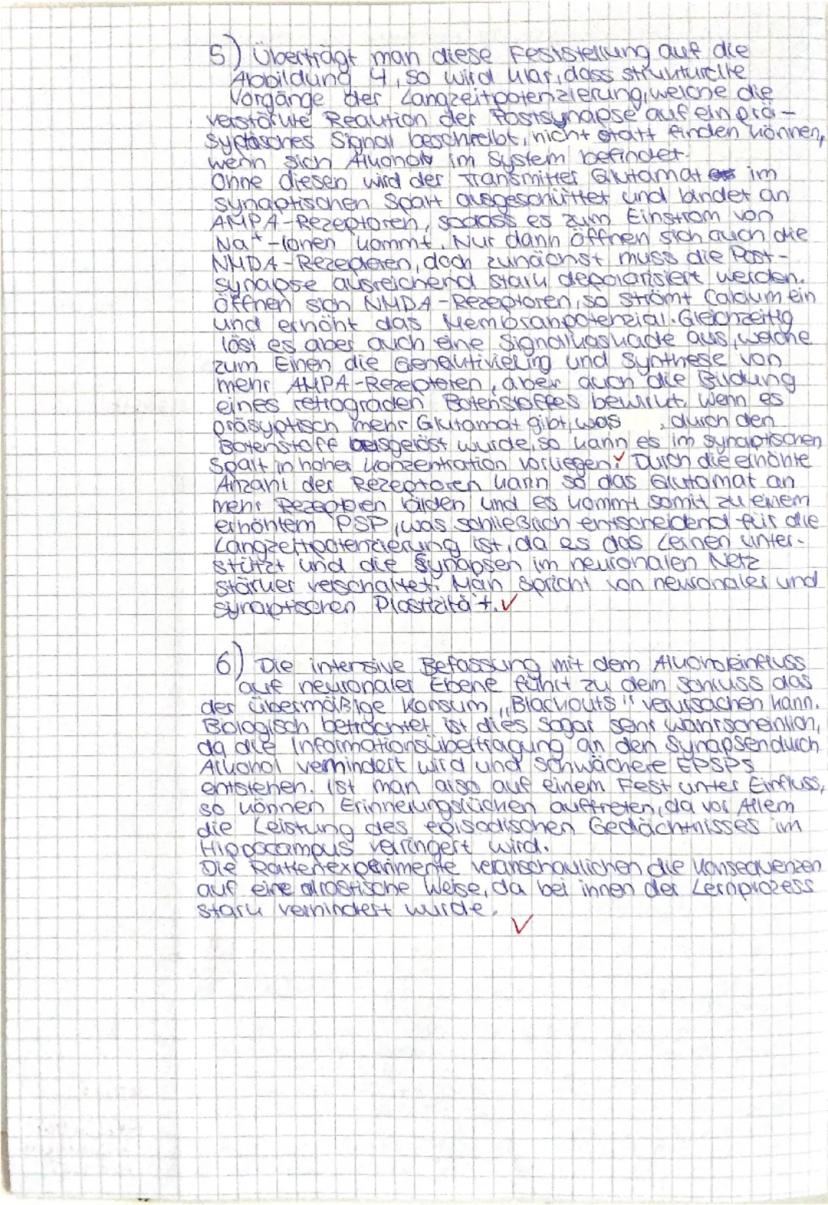 5) Überträgt man diese Feststellung auf die
Abbildung 4, so wird klar, dass strukturelle
Vorgänge der Langzeitpotenzierung, welche die
verstärkte Reaktion der Postsynapse auf ein prä-
syptisches Signal beschreibt, nicht statt finden können,
wenn sich Alkohol im System befindet.
Ohne diesen wird der Transmitter Glutamat im
synaptischen Spalt ausgeschüttet und bindet an
AMPA-Rezeptoren, sodass es zum Einstrom von
Na⁺-Ionen kommt. Nur dann öffnen sich auch die
NMDA-Rezeptoren, doch zunächst muss die Post-
synapse ausreichend stark depolarisiert werden.
Öffnen sich NMDA-Rezeptoren, so strömt Calcium ein
und erhöht das Membranpotenzial. Gleichzeitig
löst es aber auch eine Signalkaskade aus, welche
zum Einen die Genaktivierung und Synthese von
mehr AMPA-Rezeptoren, aber auch die Bildung
eines retrograden Botenstoffes bewirkt. Wenn es
präsyptisch mehr Glutamat gibt, was , durch den
Botenstoff ausgelöst wurde, so kann es im synaptischen
Spalt in hoher Konzentration vorliegen. Durch die erhöhte
Anzahl der Rezeptoren kann so das Glutamat an
mehr Rezeptoren binden und es kommt somit zu einem
erhöhtem PSP, was schließlich entscheidend für die
Langzeitpotenzierung ist, da es das Lernen unter-
stützt und die Synapsen im neuronalen Netz
stärker verschaltet. Man spricht von neuronaler und
synaptischen Plastizität.
6) Die intensive Befassung mit dem Alkoholeinfluss
auf neuronaler Ebene führt zu dem Schluss das
der übermäßige Konsum „Blackouts" verursachen kann.
Biologisch betrachtet ist dies sogar sehr wahrscheinlich,
da die Informationsübertragung an den Synapsen durch
Alkohol verhindert wird und schwächere EPSPs
entstehen. Ist man also auf einem Fest unter Einfluss,
so können Erinnerungslücken auftreten, da vor Allem
die Leistung des episodischen Gedächtnisses im
Hippocampus verringert wird.
Die Rattenexperimente veranschaulichen die Konsequenzen
auf eine drastische Weise, da bei ihnen der Lernprozess
stark verhindert wurde.